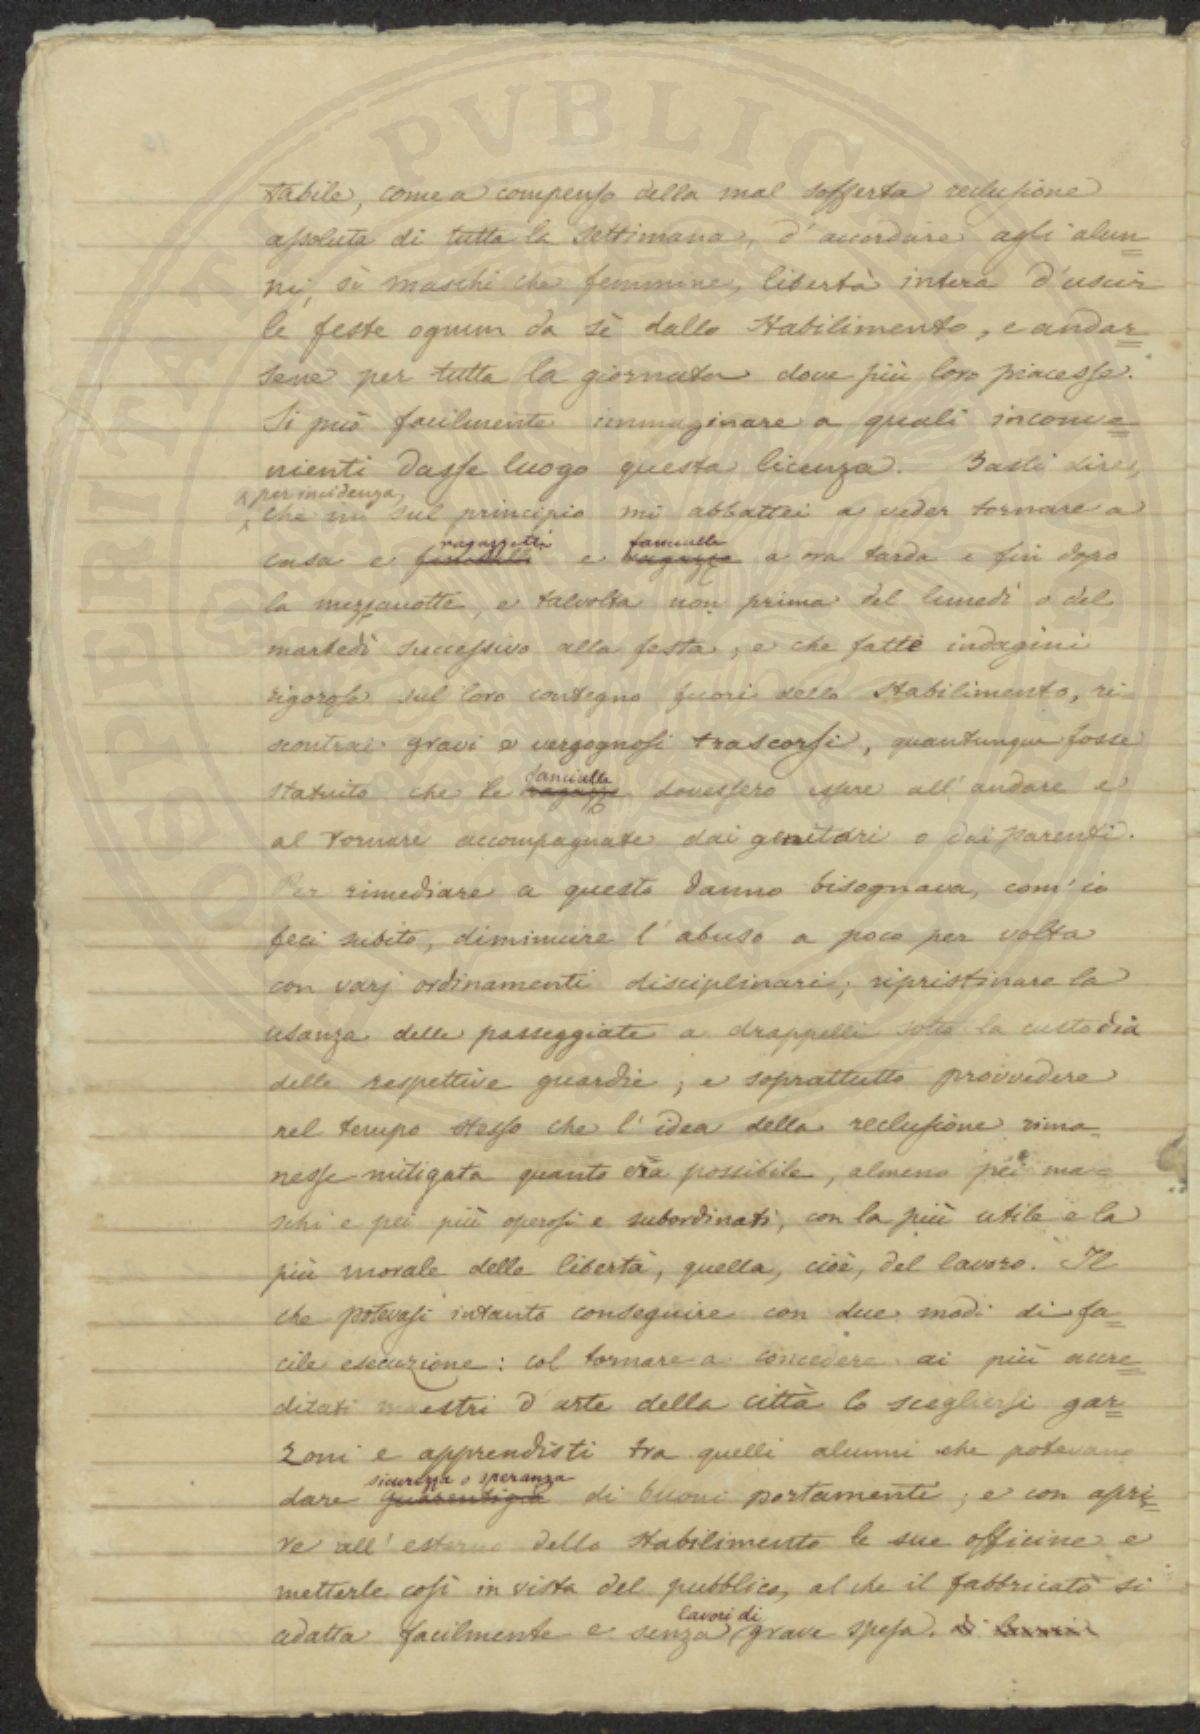 tabile, come a compenso della mal sofferta reclusione
assoluta di tutta la settimana, d'accordare agli alun=
ni, sì maschi che femmine, libertà intera d'uscir
le feste ognun da sè dallo Stabilimento, e andar=
sene per tutta la giornata dove più loro piacesse.
Si può facilmente immaginare a quali inconve=
nienti dasse luogo questa licenza. Basti dire,
per incidenza,
che in sul principio mi abbattei a veder tornare a
ragazzetti fanciulle
casa e fanciulli e ragazze a ora tarda e fin dopo
la mezzanotte, e talvolta non prima del lunedì o del
martedì successivo alla festa; e che fatte indagini
rigorose sul loro contegno fuori dello Stabilimento, ri
scontrai gravi e vergognosi trascorsi, quantunque fosse
fanciulle
statuito che le ragazze dovessero essere all'andare e
al tornare accompagnate dai genitori o dai parenti.
Per rimediare a questo danno bisognava, com'io
feci subito, diminuire l'abuso a poco per volta
con varj ordinamenti disciplinari; ripristinare la
usanza delle passeggiate a drappelli sotto la custodia
delle respettive guardie; e soprattutto provvedere
nel tempo stesso che l'idea della reclusione rima=
nesse mitigata quanto era possibile, almeno pei ma=
schi e pei più operosi e subordinati, con la più utile e la
più morale delle libertà, quella, cioè, del lavoro. Il
che potevasi intanto conseguire con due modi di fa=
cile esecuzione: col tornare a concedere ai più accre=
ditati maestri d'arte della città lo scegliersi gar=
zoni e apprendisti tra quelli alunni che potevano
sicurezza o speranza
dare guarentigia di buoni portamenti; e con apri=
re all'esterno dello Stabilimento le sue officine e
metterle così in vista del pubblico, al che il fabbricato si
lavori di
adatta facilmente e senza grave spesa. di lavori